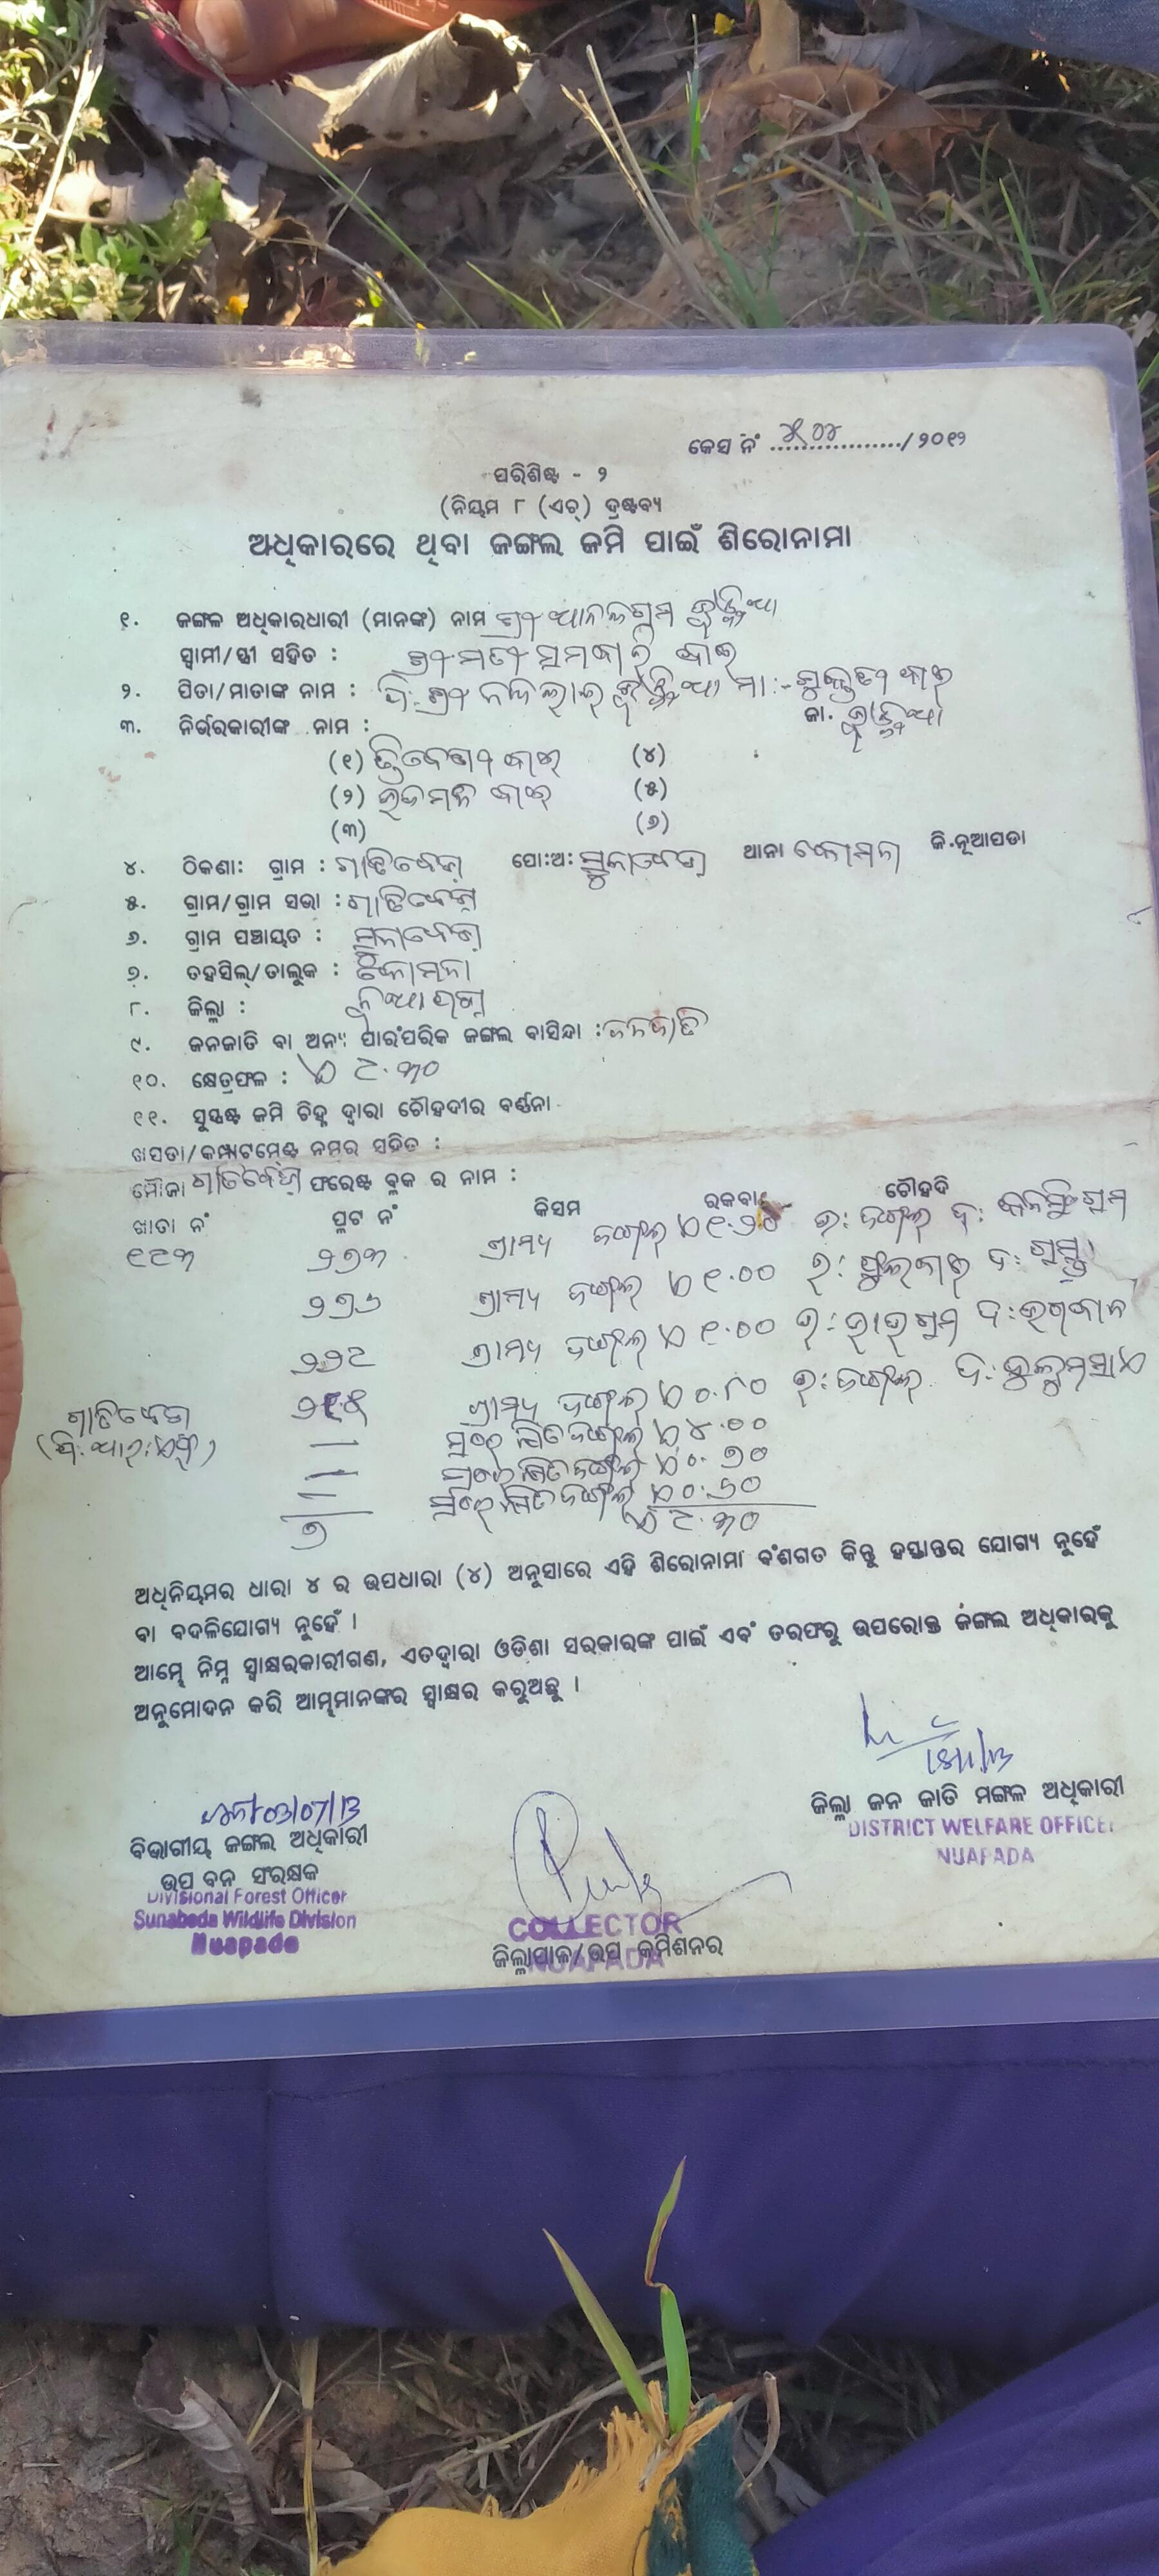 କେସ ନଂ ୪୦୪ /୨୦୧୨
ପରିଶିଷ୍ଟ - ୨
(ନିୟମ ୮ (ଏଚ୍) ଦ୍ରଷ୍ଟବ୍ୟ
ଅଧିକାରରେ ଥିବା ଜଙ୍ଗଲ ଜମି ପାଇଁ ଶିରୋନାମା
୧. ଜଙ୍ଗଲ ଅଧିକାରଧାରୀ (ମାନଙ୍କ) ନାମ ଶ୍ରୀ
ସ୍ୱାମୀ/ସ୍ତ୍ରୀ ସହିତ : ଶ୍ରୀମତୀ ବାଈ
୨. ପିତା/ମାତାଙ୍କ ନାମ : ପି: ଶ୍ରୀ ନନ୍ଦିଲାଲ ମା:- ବାଈ
୩. ନିର୍ଭରକାରୀଙ୍କ ନାମ : ଜା.
(୧) ତ୍ରିବେଣୀ ବାଈ (୪)
(୨) ବାଈ (୫)
(୩) (୬)
୪. ଠିକଣା: ଗ୍ରାମ : ଗାତିବେଡ଼ା ପୋ:ଅ: ସୁନାବେଡ଼ା ଥାନା କୋମନା ଜି.ନୂଆପଡା
୫. ଗ୍ରାମ/ଗ୍ରାମ ସଭା : ଗାତିବେଡ଼ା
୬. ଗ୍ରାମ ପଞ୍ଚାୟତ : ସୁନାବେଡ଼ା
୭. ତହସିଲ୍/ତାଲୁକ : କୋମନା
୮. ଜିଲ୍ଲା : ନୂଆପଡ଼ା
୯. ଜନଜାତି ବା ଅନ୍ୟ ପାରଂପରିକ ଜଙ୍ଗଲ ବାସିନ୍ଦା : ଜନଜାତି
୧୦. କ୍ଷେତ୍ରଫଳ : ଏ ୯.୩୦
୧୧. ସୁସ୍ପଷ୍ଟ ଜମି ଚିହ୍ନ ଦ୍ୱାରା ଚୌହଦୀର ବର୍ଣ୍ଣନା
ଖସଡା/କମ୍ପାଟମେଣ୍ଟ ନମ୍ବର ସହିତ :
ମୌଜା ଗାତିବେଡ଼ା ଫରେଷ୍ଟ ବ୍ଲକ ର ନାମ :
ଖାତା ନଂ ପ୍ଲଟ ନଂ କିସମ ରକବା ଚୌହଦି
୧୯୩ ୨୭୩ ଗ୍ରାମ୍ୟ ଜଙ୍ଗଲ ଏ ୧.୨୦ ଉ: ଜଙ୍ଗଲ ଦ:
୨୭୬ ଗ୍ରାମ୍ୟ ଜଙ୍ଗଲ ଏ ୧.୦୦ ଉ: ଫୁଲବାଈ ଦ:
୨୨୯ ଗ୍ରାମ୍ୟ ଜଙ୍ଗଲ ଏ ୧.୦୦ ଉ: ଦ:
ଗ୍ରାମ୍ୟ ଜଙ୍ଗଲ ଏ ୦.୮୦ ଉ: ଜଙ୍ଗଲ ଦ:
ଗାତିବେଡ଼ା — ସଂରକ୍ଷିତ ଜଙ୍ଗଲ ଏ ୪.୦୦
— ସଂରକ୍ଷିତ ଜଙ୍ଗଲ ଏ ୦.୭୦
— ସଂରକ୍ଷିତ ଜଙ୍ଗଲ ଏ ୦.୬୦
୭ ଏ ୯.୩୦
ଅଧିନିୟମର ଧାରା ୪ ର ଉପଧାରା (୪) ଅନୁସାରେ ଏହି ଶିରୋନାମା ବଂଶଗତ କିନ୍ତୁ ହସ୍ତାନ୍ତର ଯୋଗ୍ୟ ନୁହେଁ
ବା ବଦଳିଯୋଗ୍ୟ ନୁହେଁ ।
ଆମ୍ଭେ ନିମ୍ନ ସ୍ୱାକ୍ଷରକାରୀଗଣ, ଏତଦ୍ୱାରା ଓଡିଶା ସରକାରଙ୍କ ପାଇଁ ଏବଂ ତରଫରୁ ଉପରୋକ୍ତ ଜଙ୍ଗଲ ଅଧିକାରକୁ
ଅନୁମୋଦନ କରି ଆମ୍ଭମାନଙ୍କର ସ୍ୱାକ୍ଷର କରୁଅଛୁ ।
ଜିଲ୍ଲା ଜନ ଜାତି ମଙ୍ଗଳ ଅଧିକାରୀ
DISTRICT WELFARE OFFICER
NUAPADA
03/07/13
ବିଭାଗୀୟ ଜଙ୍ଗଲ ଅଧିକାରୀ
ଉପ ବନ ସଂରକ୍ଷକ
Divisional Forest Officer
Sunabeda Wildlife Division
Nuapada
COLLECTOR
ଜିଲ୍ଲାପାଳ/ଉପ କମିଶନର
NUAPADA